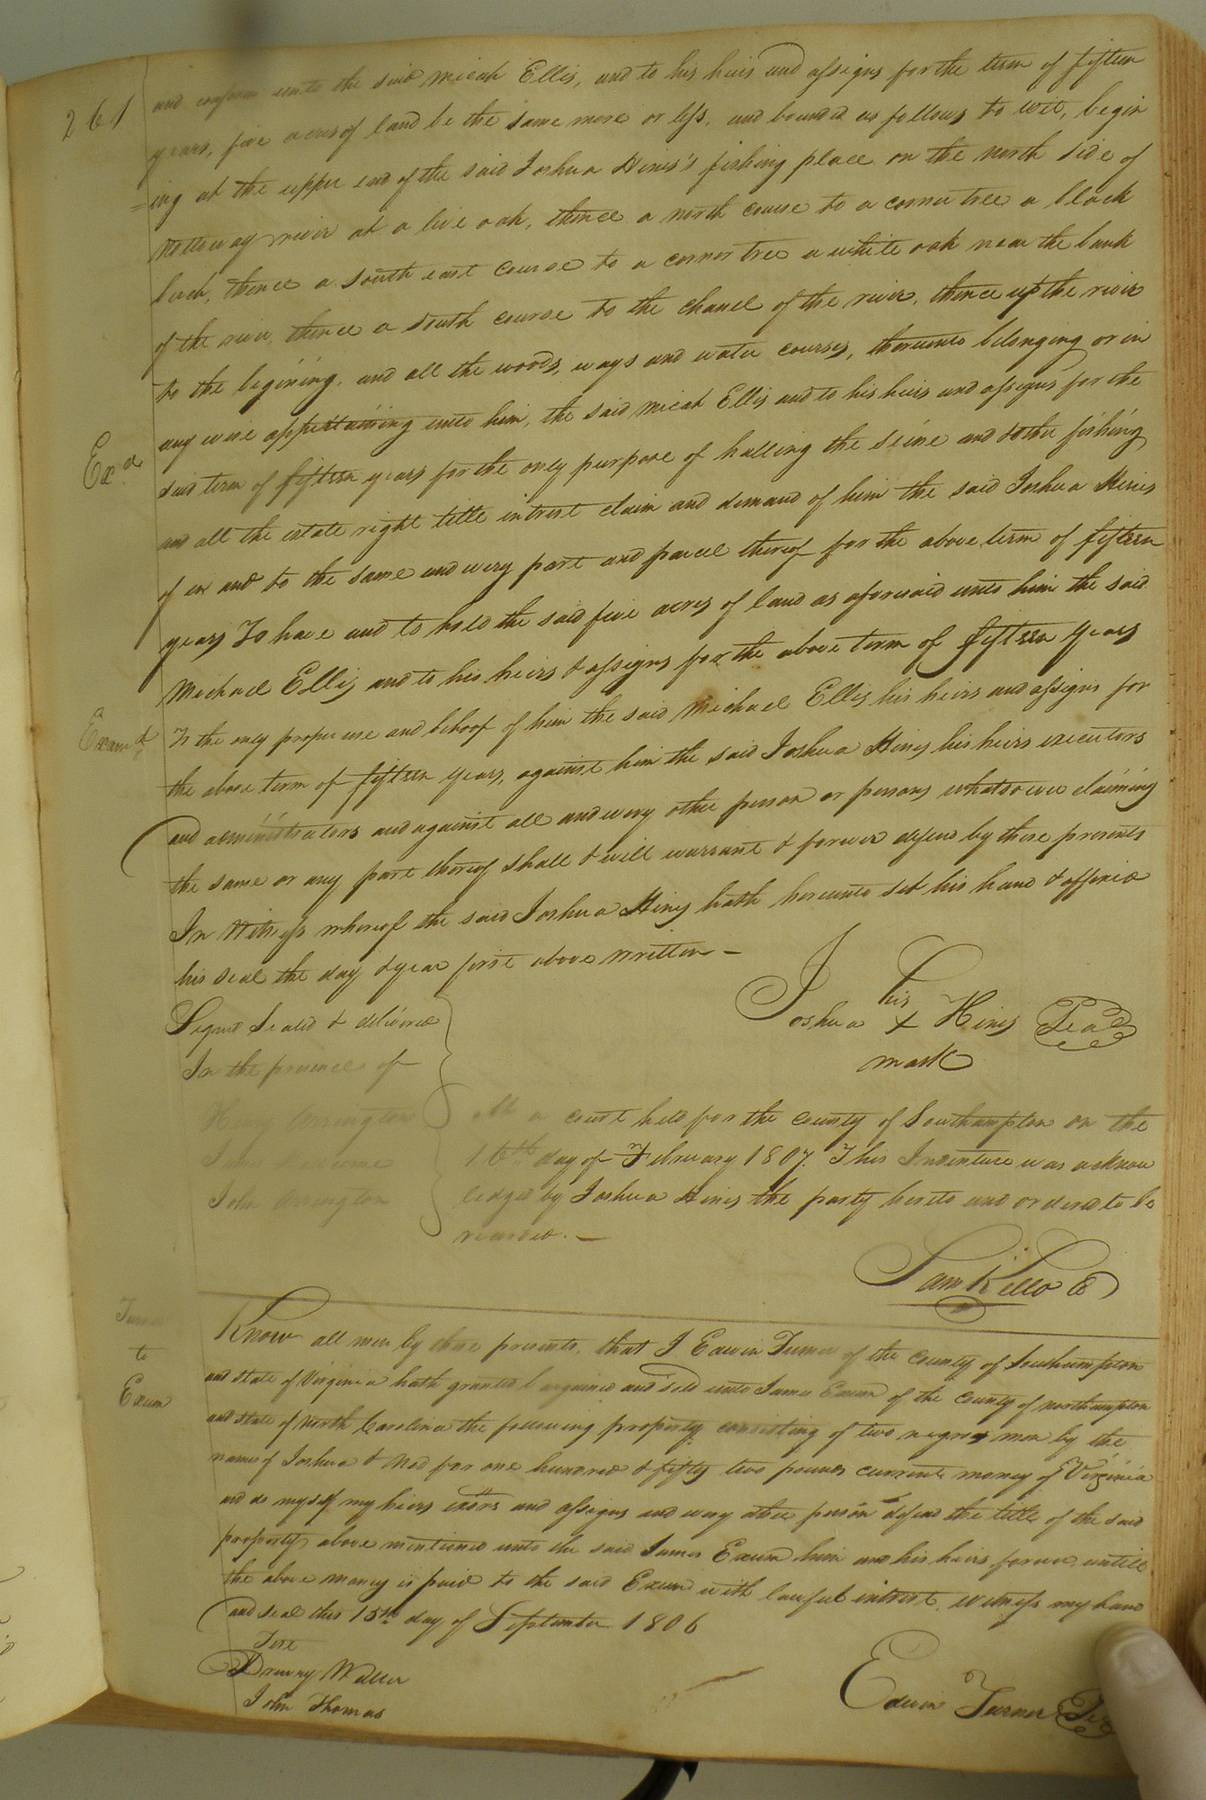 261
and confirm unto the said Micah Ellis, and to his heirs and assigns for the term of fifteen
years, five acres of land be the same more or less, and bounded as follows to wit, begin
=ing at the upper end of the said Joshua Hines's fishing place on the north side of
Nottoway river at a live oak, thence a north course to a corner tree a black
birch, thence a south east course to a corner tree a white oak near the bank
of the river, thence a south course to the chanel of the river, thence up the river
to the begining, and all the woods, ways and water courses, thereunto belonging or in
any wise appertaining unto him, the said Micah Ellis and to his heirs and assigns for the
Exd
said term of fifteen years for the only purpose of halling the seine and other fishing
and all the estate right title intrest claim and demand of him the said Joshua Hines
of in and to the same and every part and parcel thereof for the above term of fifteen
years To have and to hold the said five acres of land as aforesaid unto him the said
Michael Ellis and to his heirs & assigns for the above term of fifteen years
Examd
To the only proper use and behoof of him the said Michael Ellis his heirs and assigns for
the above term of fifteen years, against him the said Joshua Hines his heirs executors
and administrators and against all and every other person or persons whatsoever claiming
the same or any part thereof shall & will warrant & forever defend by these presents
In Witness whereof the said Joshua Hines hath hereunto set his hand & affixed
his seal the day & year first above written —
Signed Sealed & delivered
In the presence of
his
Joshua X Hines Seal
mark
Arrington
John Arrington
At a court held for the county of Southampton on the
16th day of February 1807. This Indenture was acknow
ledged by Joshua Hines the party hereto and ordered to be
recorded. —
Sam Kello C
Turner
to
Exum
Know all men by these presents, that I Edwin Turner of the county of Southampton
and state of Virginia hath granted bargained and sold unto James Exum of the county of Northampton
and state of North Carolina the following property consisting of two negroes men by the
names of Joshua & Ned for one hundred & fifty two pounds current money of Virginia
and do myself my heirs exors and assigns and every other person defend the title of the said
property above mentioned unto the said James Exum him and his heirs forever untill
the above money is paid to the said Exum with lawful intrest. witness my hand
and seal this 15th day of September 1806
Test
Drewry Waller
John Thomas
Edwin Turner Seal